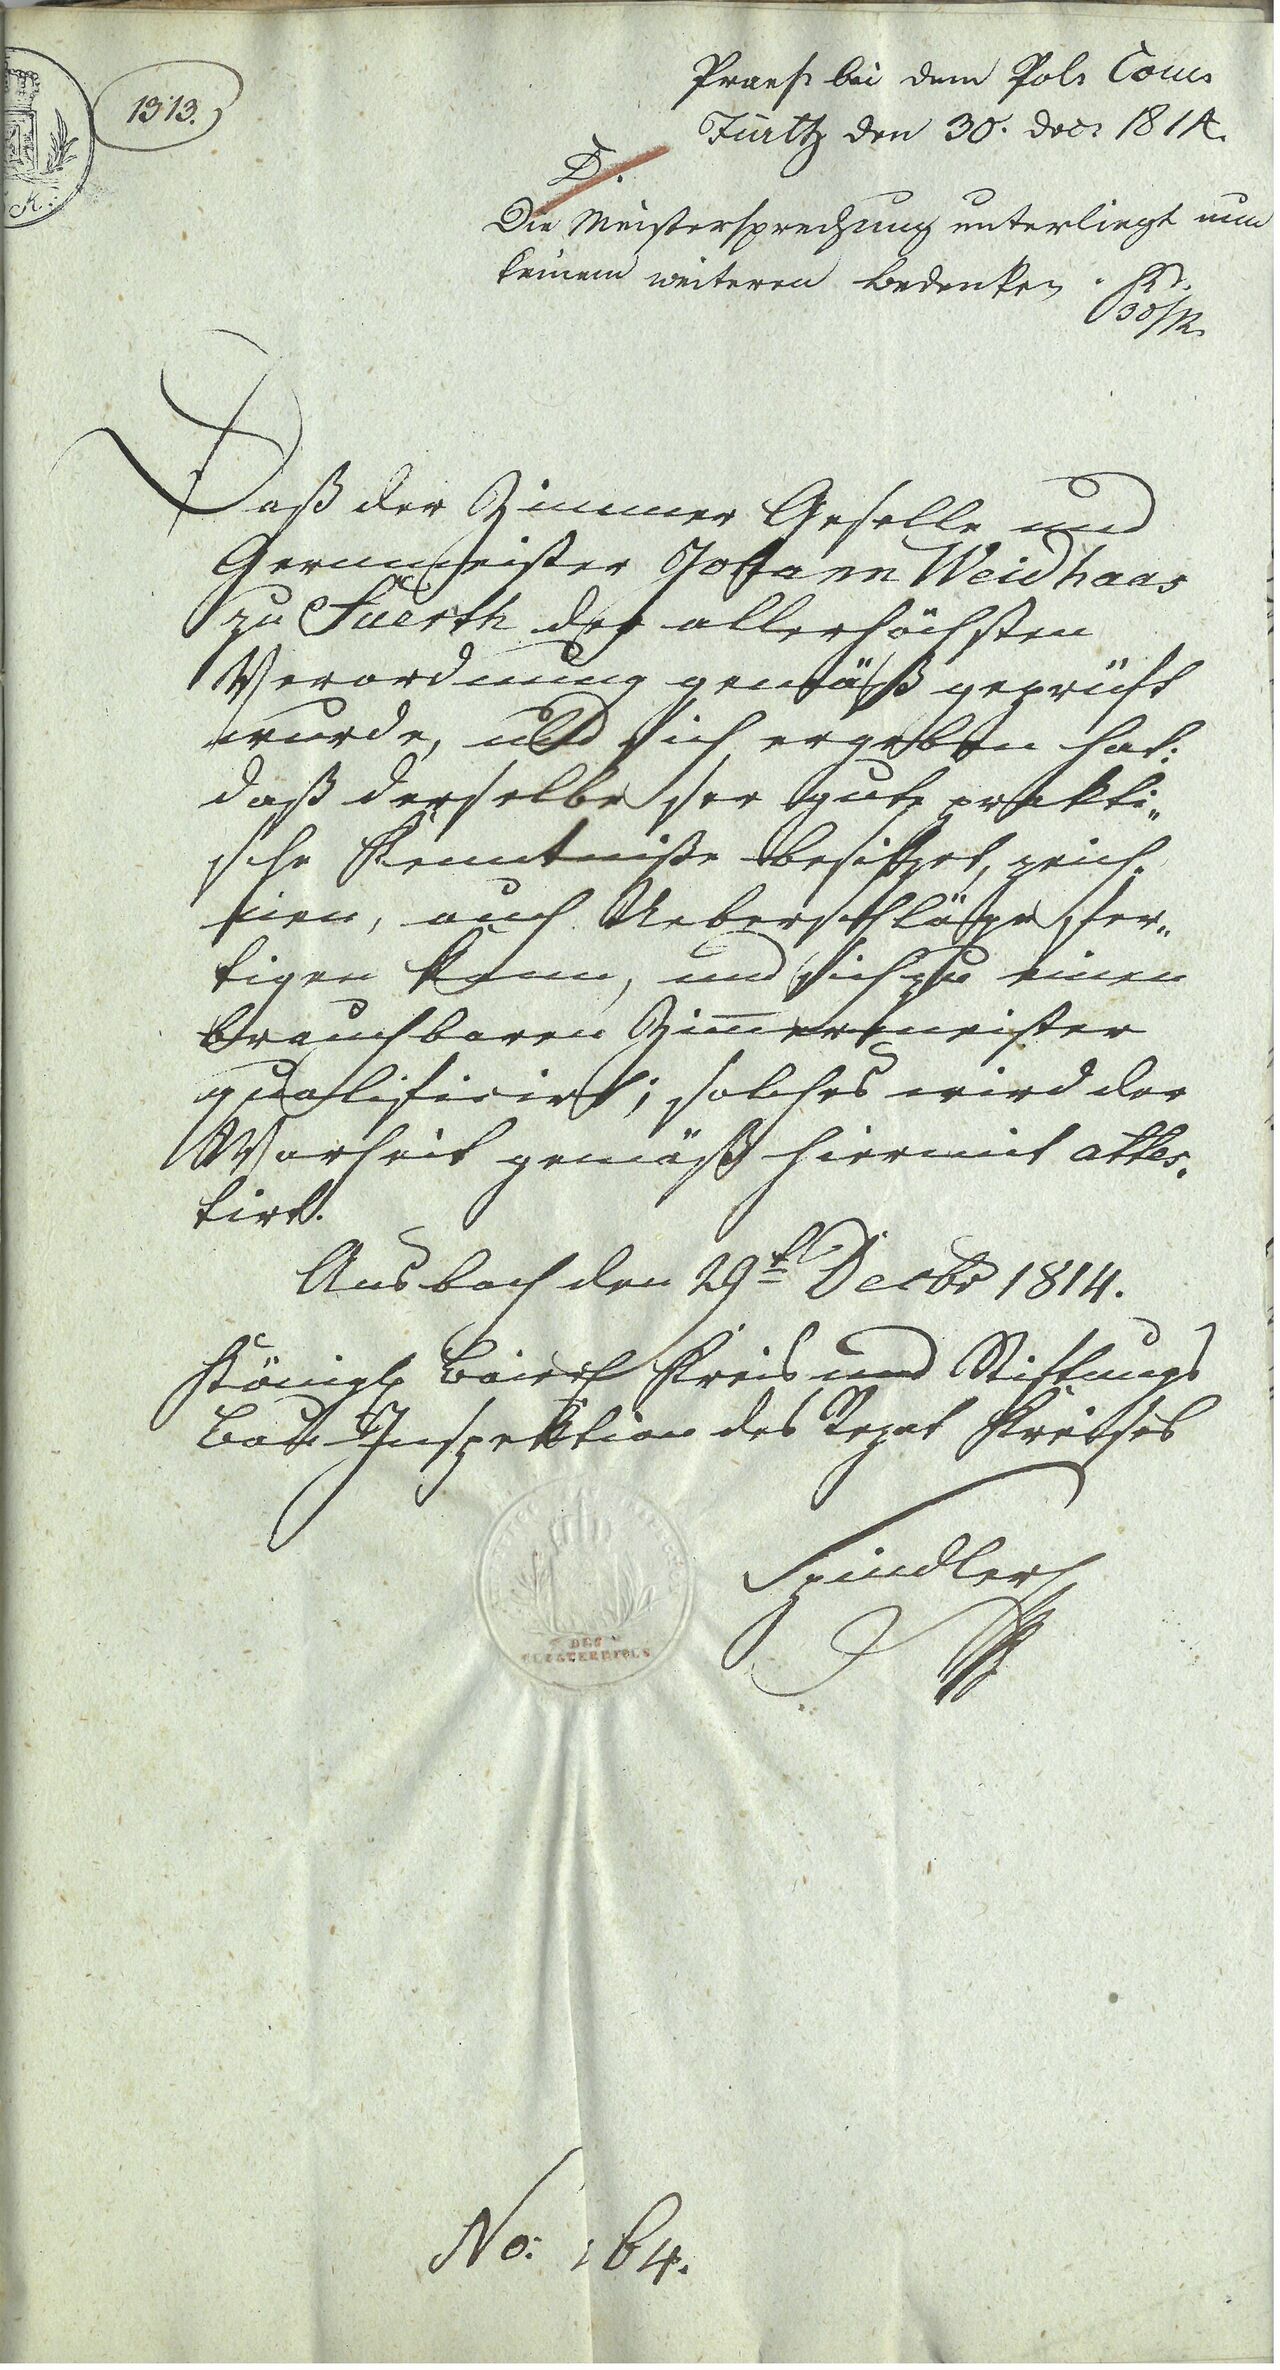 1313.
Praes: bei dem Pol: Com:
Fürth den 30. Dec: 1814.
D.
Die Meistersprechung unterliegt nun
keinem weiteren Bedenken.
30/12.
Daß der Zimmer Geselle und
Johann Weidhaas
zu Fuerth der allerhöchsten
Verordnung gemäß geprüft
wurde, und sich ergeben hat:
daß derselbe sehr gute prakti„
sche Kenntniße besitzet, zeich„
nen, auch Ueberschläge fer„
tigen kann, und sich zu einen
brauchbaren Zimmermeister
qualificirt; solches wird der
Warheit gemäß hiermit attes„
tirt.
Ansbach den 29t Decbr 1814.
Königl Baier Kreis und Stiftungs
Bau Inspektion des Rezat Kreises
Spindler
DES
No: 164.